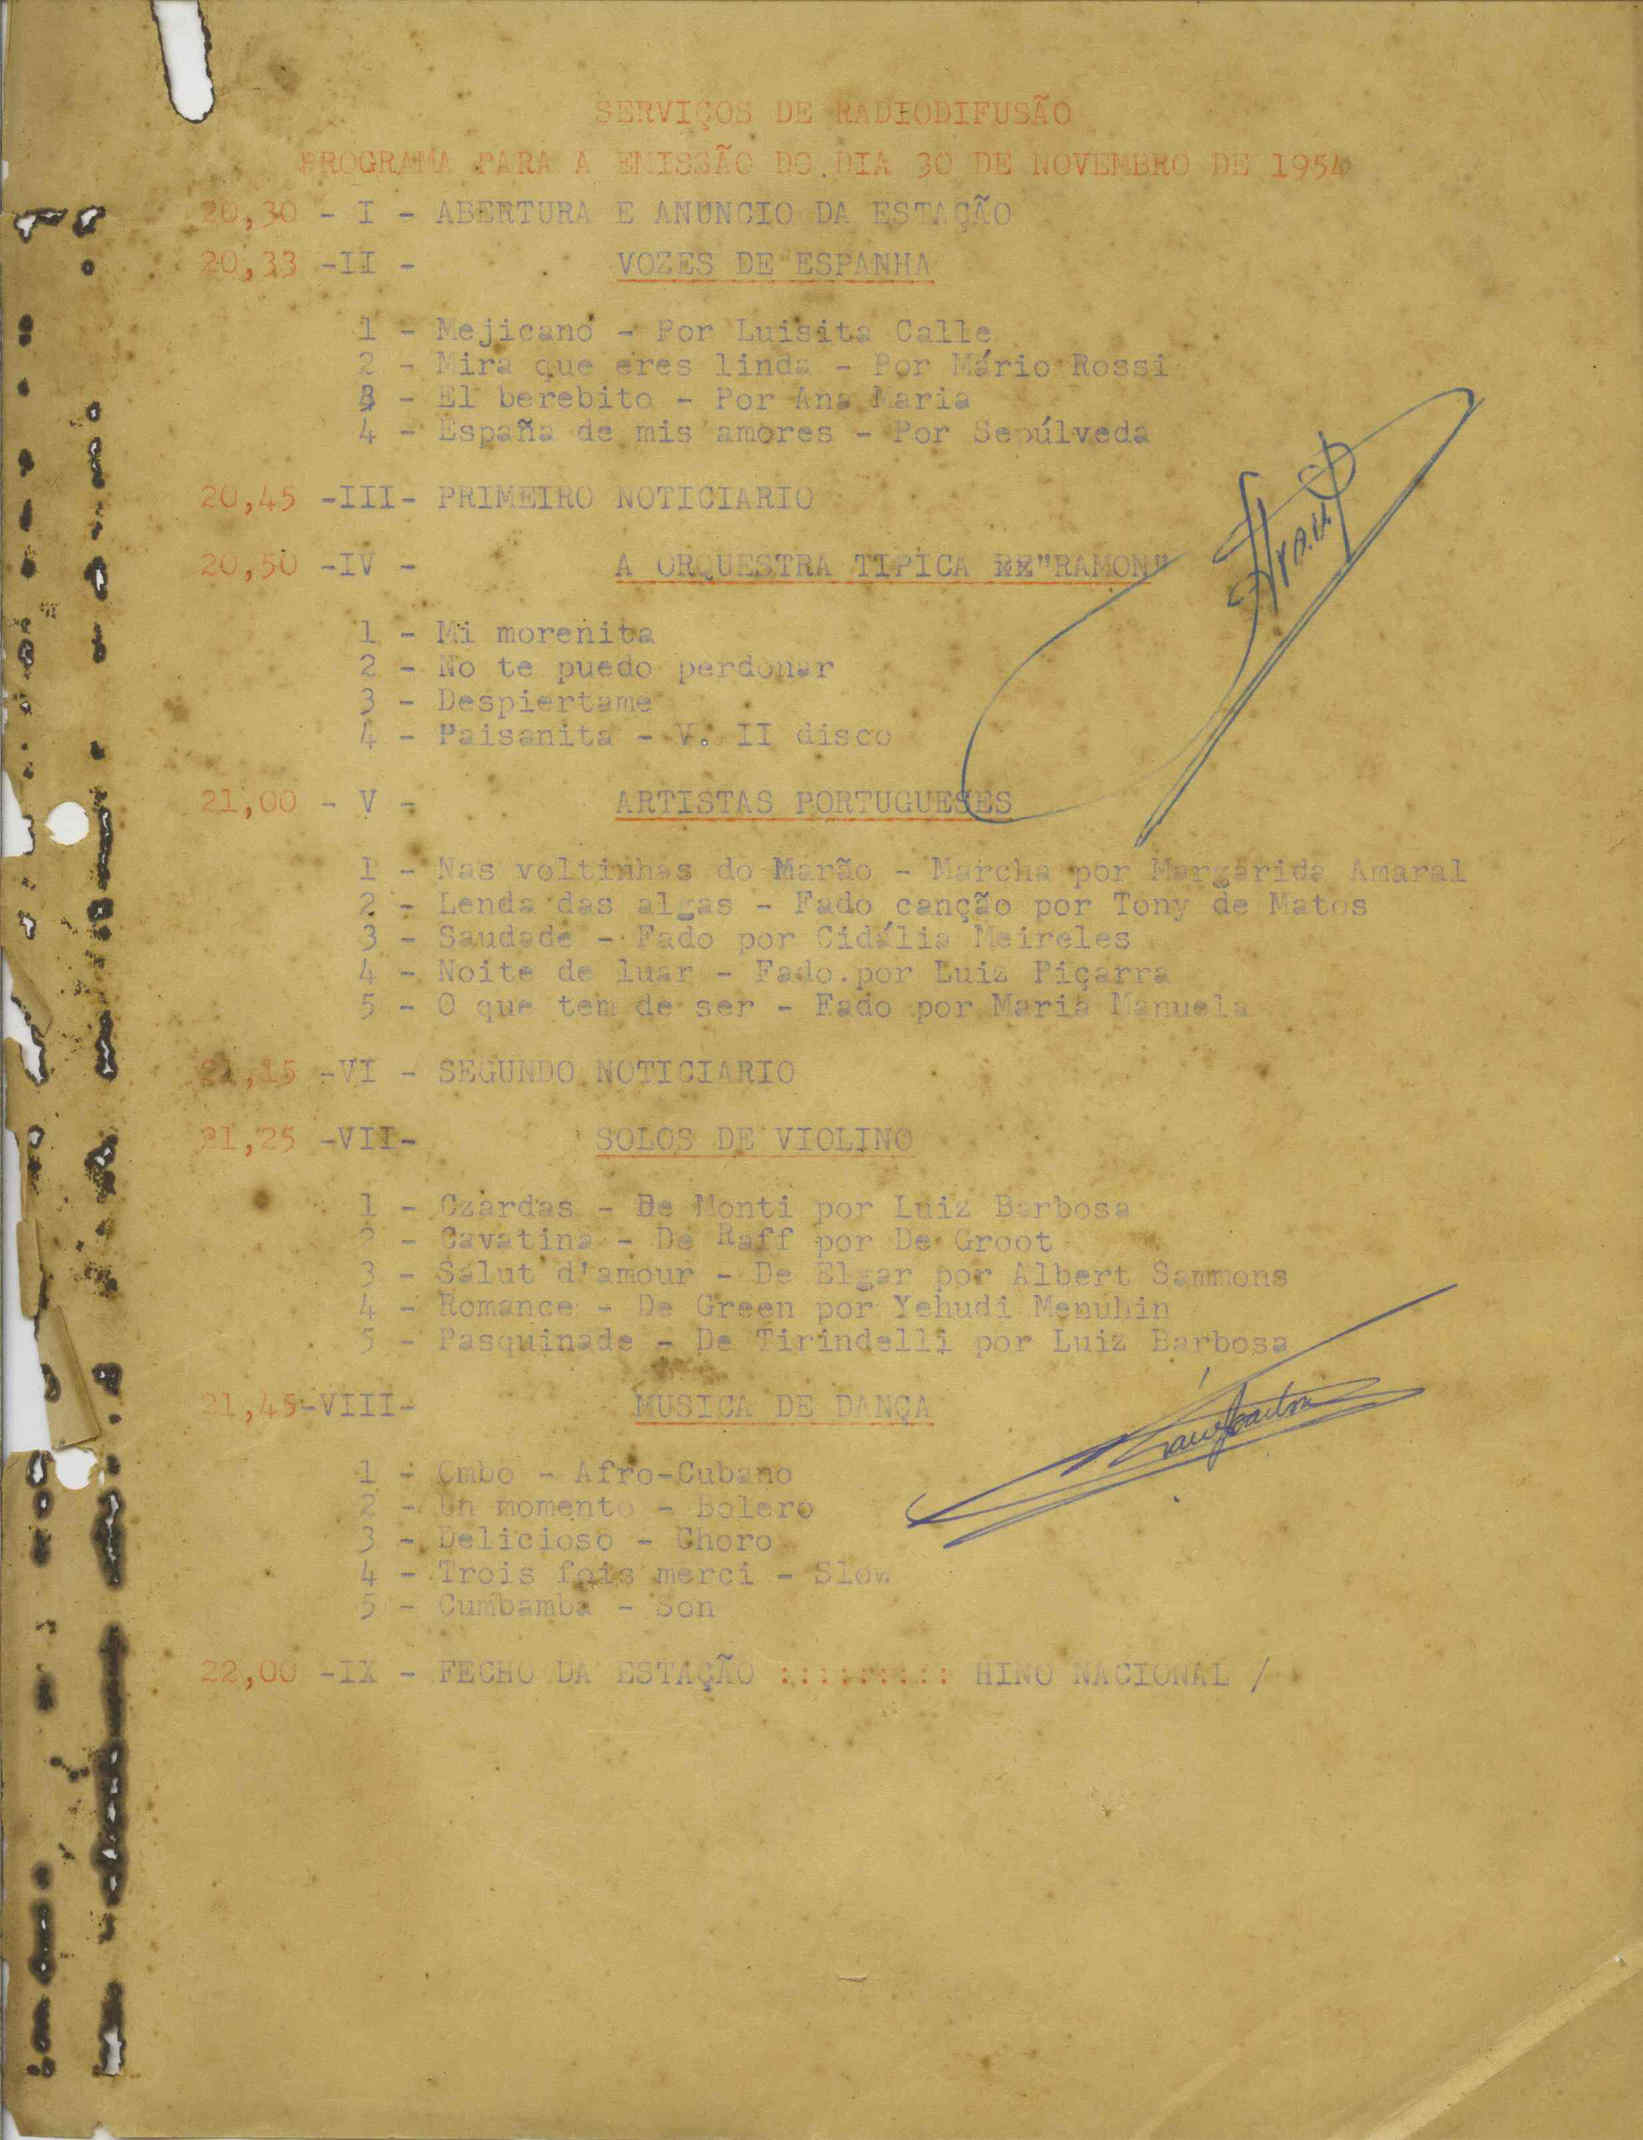 SERVIÇOS DE RADIODIFUSÃO
PROGRAMA PARA A EMISSÃO DO DIA 30 DE NOVEMBRO DE 1954
20,30 - I - ABERTURA E ANUNCIO DA ESTAÇÃO
20,33 -II - VOZES DE ESPANHA
1 - Mejicano - Por Luisita Calle
2 - Mira que eres linda - Por Mário Rossi
3 - El berebito - Por Ana Maria
4 - España de mis amores - Por Sepúlveda
20,45 -III- PRIMEIRO NOTICIARIO
20,50 -IV - A ORQUESTRA TIPICA DE"RAMON"
1 - Mi morenita
2 - No te puedo perdonar
3 - Despiertame
4 - Paisanita - V. II disco
21,00 - V - ARTISTAS PORTUGUESES
1 - Nas voltinhas do Marão - Marcha por Margarida Amaral
2 - Lenda das algas - Fado canção por Tony de Matos
3 - Saudade - Fado por Cidália Meireles
4 - Noite de luar - Fado por Luiz Piçarra
5 - O que tem de ser - Fado por Maria Manuela
21,15 -VI - SEGUNDO NOTICIARIO
21,25 -VII- SOLOS DE VIOLINO
1 - Czardas - De Monti por Luiz Barbosa
2 - Cavatina - De Raff por De Groot
3 - Salut d'amour - De Elgar por Albert Sammons
4 - Romance - De Green por Yehudi Menuhin
5 - Pasquinade - De Tirindelli por Luiz Barbosa
21,45-VIII- MUSICA DE DANÇA
1 - Ombo - Afro-Cubano
2 - Un momento - Bolero
3 - Delicioso - Choro
4 - Trois fois merci - Slow
5 - Cumbamba - Son
22,00 -IX - FECHO DA ESTAÇÃO ::::::::: HINO NACIONAL /